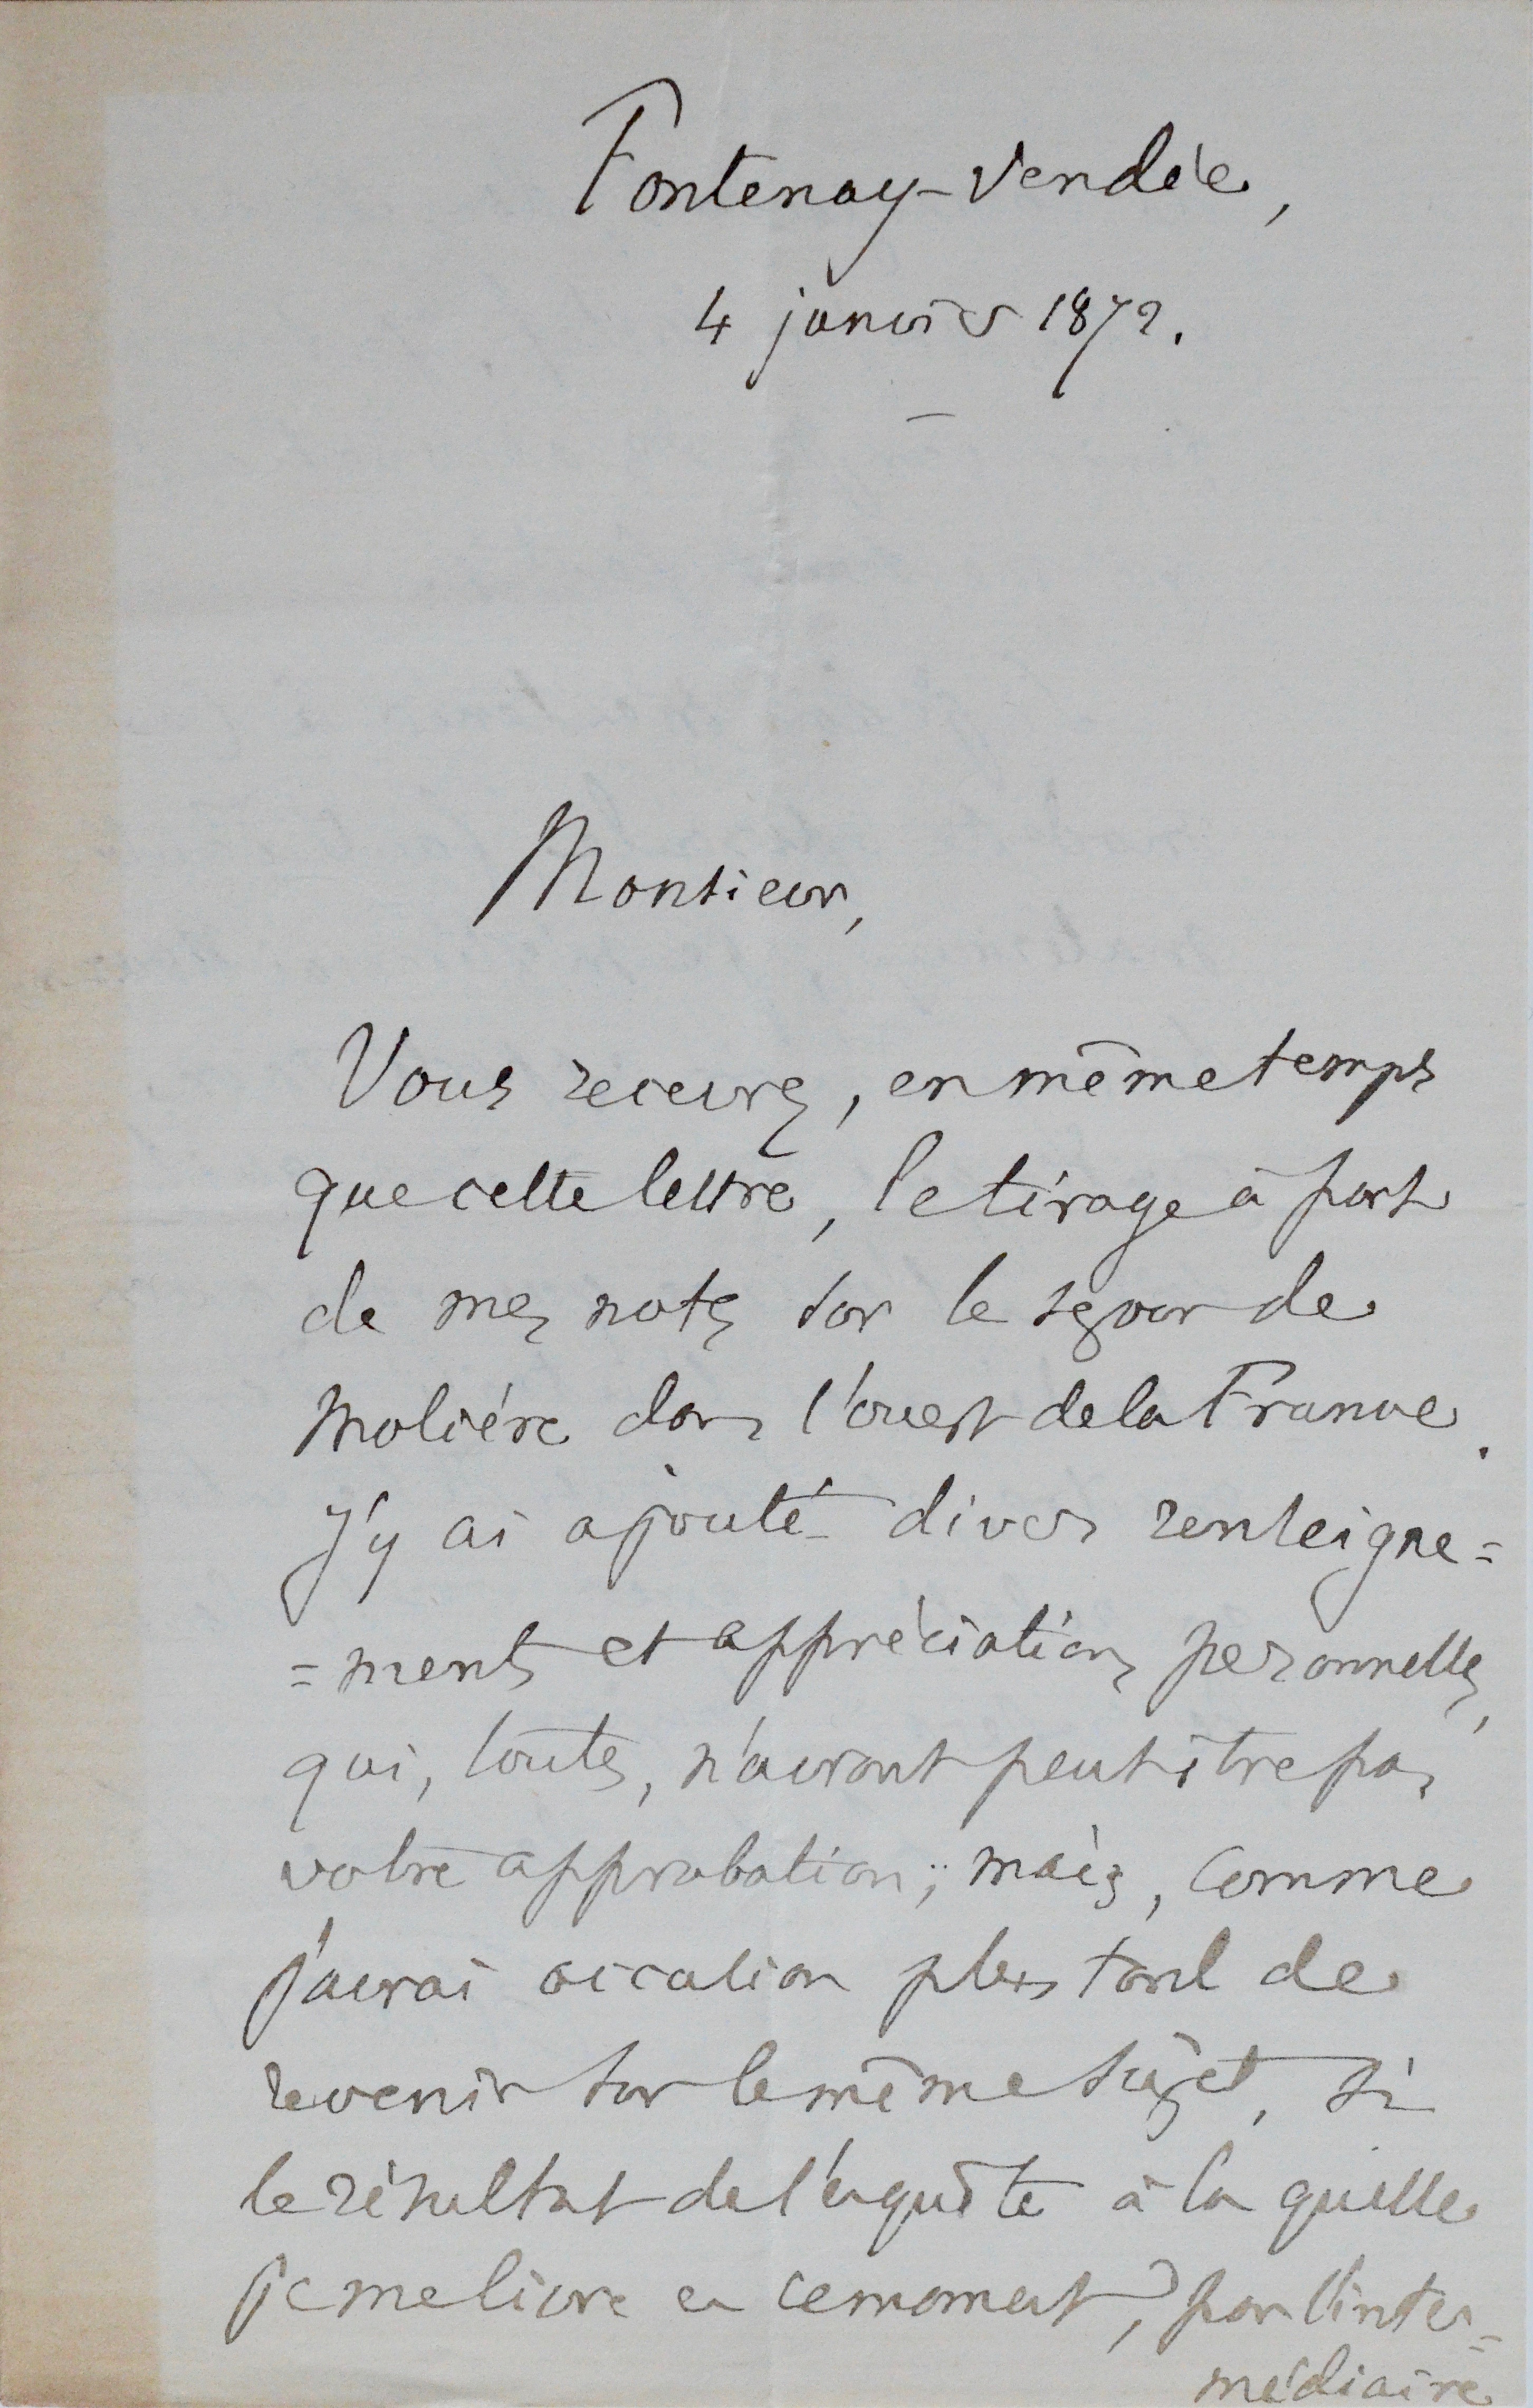 Fontenay-Vendée,
4 janvier 1872.
Monsieur,
Vous recevrez, en même temps
que cette lettre, le tirage à part
de mes notes sur le séjour de
Molière dans l'ouest de la France.
J'y ai ajouté divers renseigne=
=ments et appréciations personnelles,
qui, toutes, n'auront peut être pas
votre approbation; mais, comme
j'aurai occasion plus tard de
revenir sur le même sujet, si
le résultat de l'enquête à la quelle
je me livre en ce moment, par l'inter=
médiaire